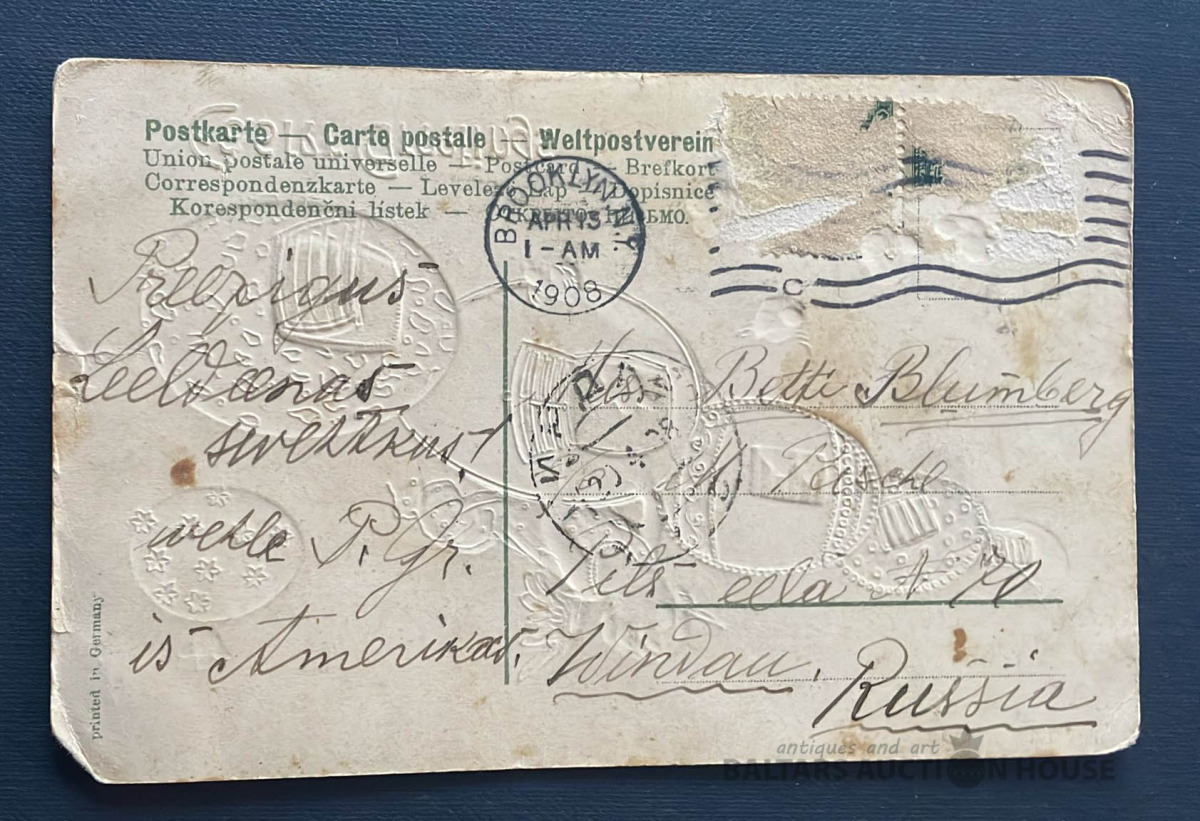 Postkarte — Carte postale — Weltpostverein
Union postale universelle — Postcard — Brefkort
Correspondenzkarte — Levelező Lap — Dopisnice
Korespondenčni lístek — ОТКРЫТОЕ ПИСЬМО.
BROOKLYN, N.Y.
APR 13
1-AM
1908
C
Preezigus
Leeldeenas
swehtkus!
wehle P. Gr.
is Amerikas.
Miss Betti Blumberg
Pils eela № 70
Windau,
Russia
printed in Germany
antiques and art
BALTARS AUCTION HOUSE